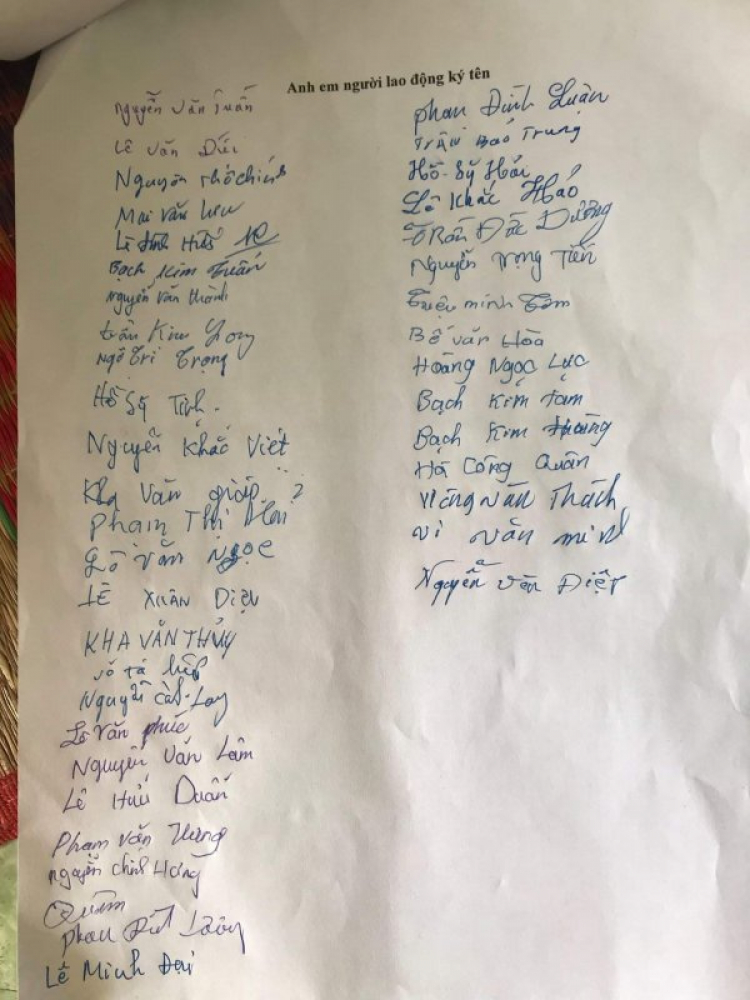 Anh em người lao động ký tên
Nguyễn Văn Tuấn
Lê Văn Đức
Nguyễn
Mai Văn Lưu
Lê Hiếu
Bạch Kim Tuấn
Nguyễn Văn Thành
Trần Kim Long
Ngô Trí Trọng
Hồ Sỹ Tịnh.
Nguyễn Khắc Viết
Kha Văn giáp
Phạm Thị
Lô Văn Ngọc
LÊ XUÂN Diệu
KHA VĂN THỦY
võ tá
Nguyễn
Lê Văn phúc
Nguyễn Văn Lâm
Lê Hữu Duẩn
Phạm Văn Hùng
Nguyễn
Phan
Lê Minh Đại
Phan Đình Luận
Trần Bảo Trung
Hồ Sỹ Hải
Lê Khắc Hảo
Trần Đắc Dưỡng
Nguyễn Trọng Tiến
Triệu minh Tâm
Bế văn Hòa
Hoàng Ngọc Lực
Bạch Kim Tam
Bạch Kim
Hà Công Quân
Văn Thách
vi văn minh
Nguyễn Văn Điệp